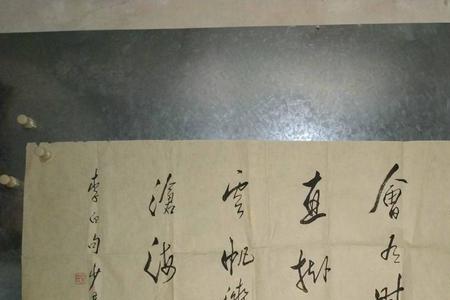 會有時
直掛
雲帆濟
滄海
李白句少